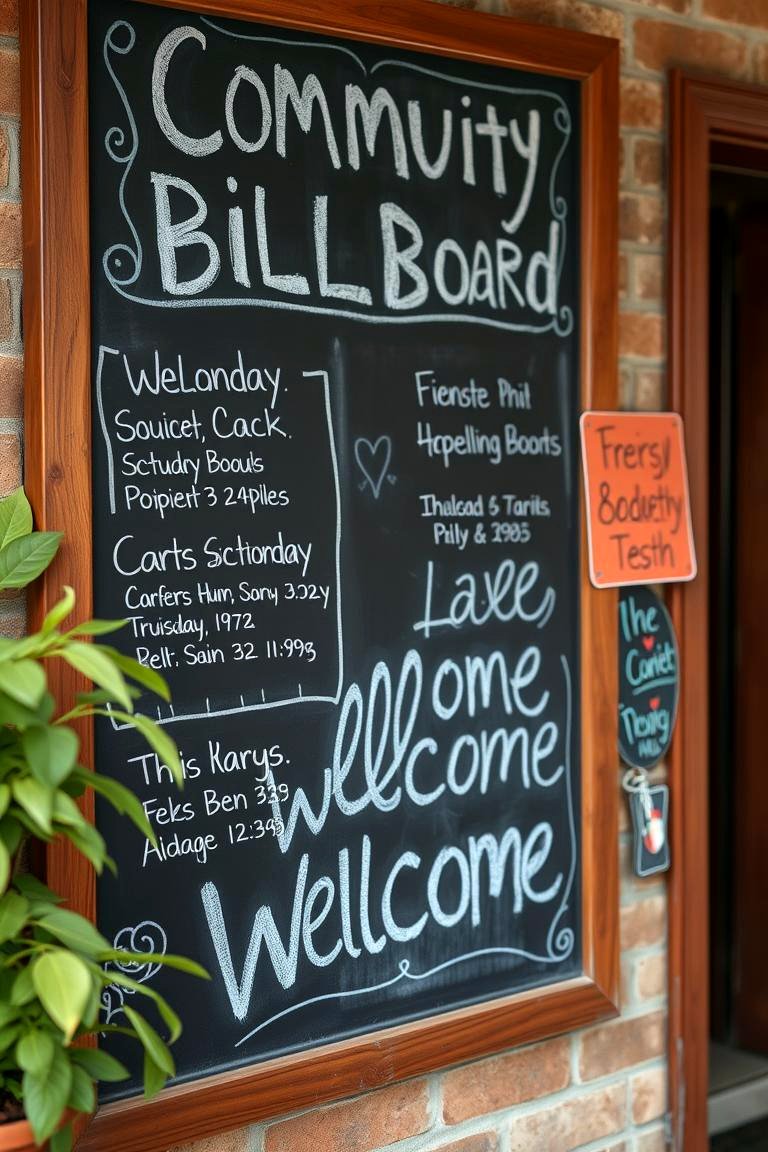 Commuity
BiLL Board
WeLonday.
Souicet, Cack.
Sctudry Boouls
Poipiert 3 24piles
Carts Sctionday
Carfers Hum, Sany 3.32y
Truisday, 1972
Belt: Sain 32 11:99g
This Karys.
Feks Ben 339
Aidage 12:34
Fienste Phil
Hcpelling Boorts
Ihalcad & Tarits
Pily & 2985
Lavee,
ome
Wellcome
Wellcome
Freirsy
&oduethy
Testh
The
Coniet